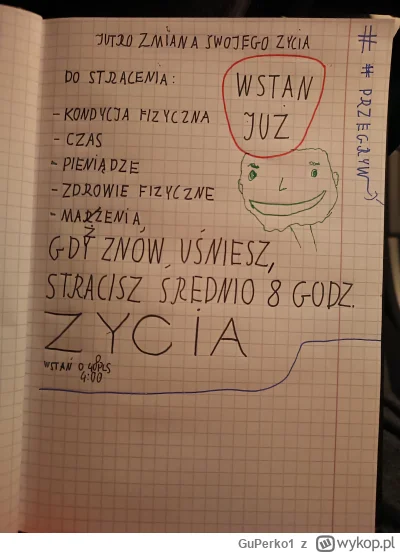 JUTRO ZMIANA SWOJEGO ZYCIA
DO STRACENIA:
- KONDYCJA FIZYCZNA
- CZAS
- PIENIĄDZE
- ZDROWIE FIZYCZNE
- MARZENIA
WSTAN
JUŻ
# # PRZEGRYW
GDY ZNÓW UŚNIESZ,
STRACISZ ŚREDNIO 8 GODZ.
ŻYCIA
WSTAŃ O
4:00
GuPerko1 z wykop.pl